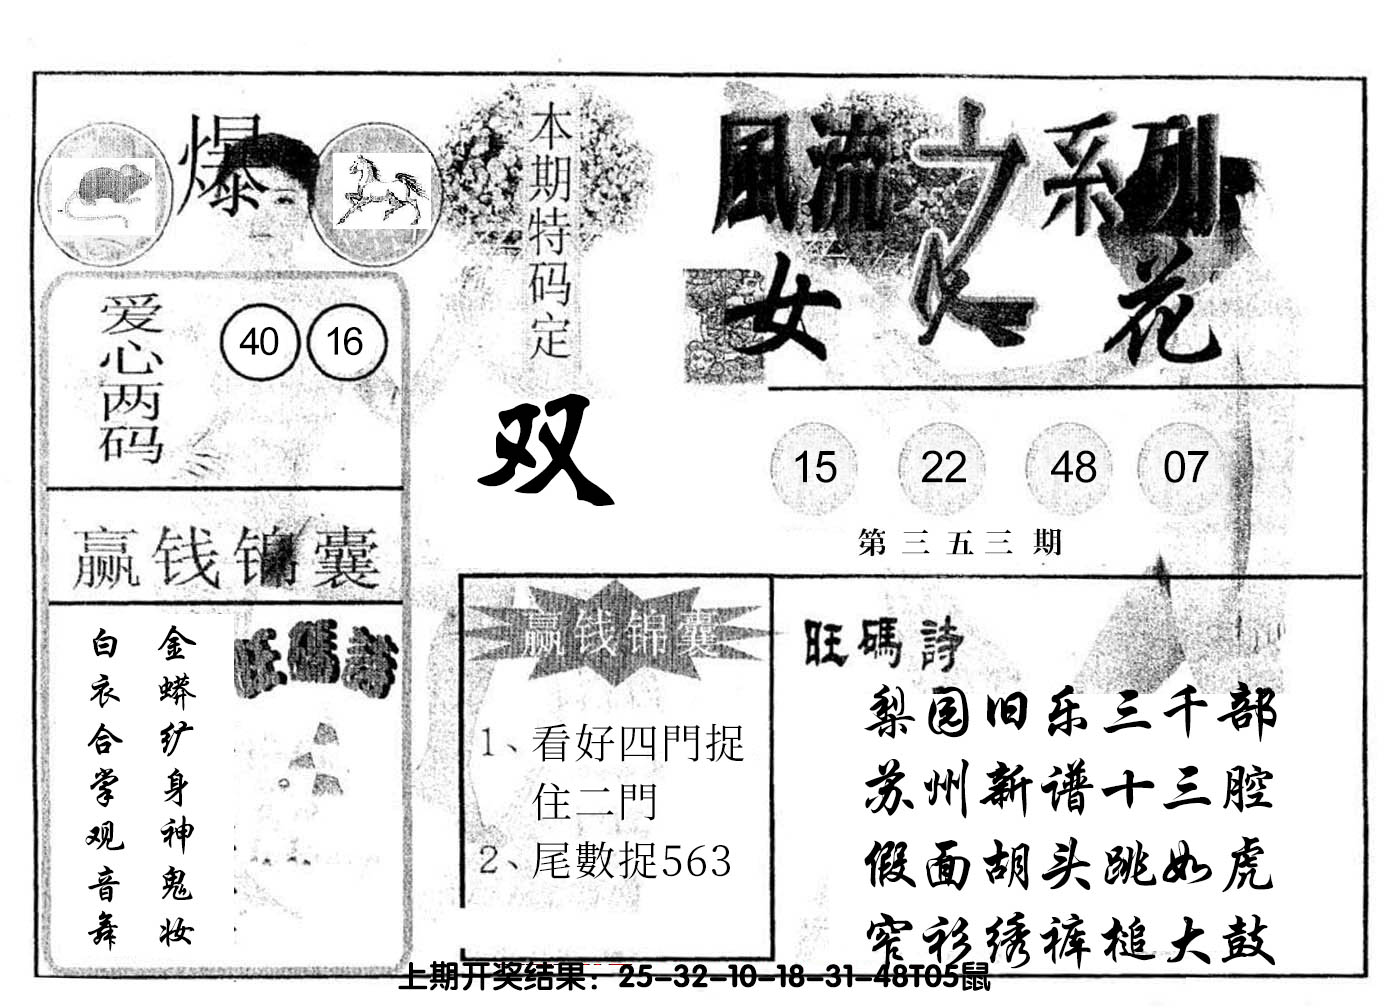 爆
本期特码定
双
風流之系列
女人花
爱心两码
40 16
15 22 48 07
第三五三期
赢钱锦囊
金蟒纩身神鬼妆
白衣合掌观音舞
旺碼詩
赢钱锦囊
1、看好四門捉
住二門
2、尾數捉563
旺碼詩
梨园旧乐三千部
苏州新谱十三腔
假面胡头跳如虎
窄衫绣裤槌大鼓
上期开奖结果：25-32-10-18-31-48T05鼠